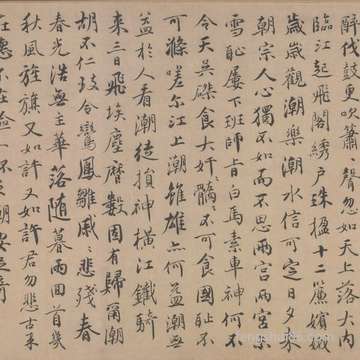 醉伐鼓更吹簫聲忽如天上落大内
臨江起飛閣繡戶珠楹十二簾嬪嬙
歲歲觀潮樂潮水信可定日夕來
朝宗人心獨不如而不思兩宮兩宮
雪恥屢下班師旨白馬素車神何不
令天吳磔食大奸髓〻不可食國恥不
可滌嗟尔江上潮雖雄亦何益潮無
益於人看潮徒損神橫江鐵騎
來三日飛埃塵曆數固有歸爾潮
胡不仁致令鸞鳳雛戚悲殘春
春光浩無主華落隨暮雨回首幾
秋風旌旗又如許又如許君勿悲古來
在德不在險一不足